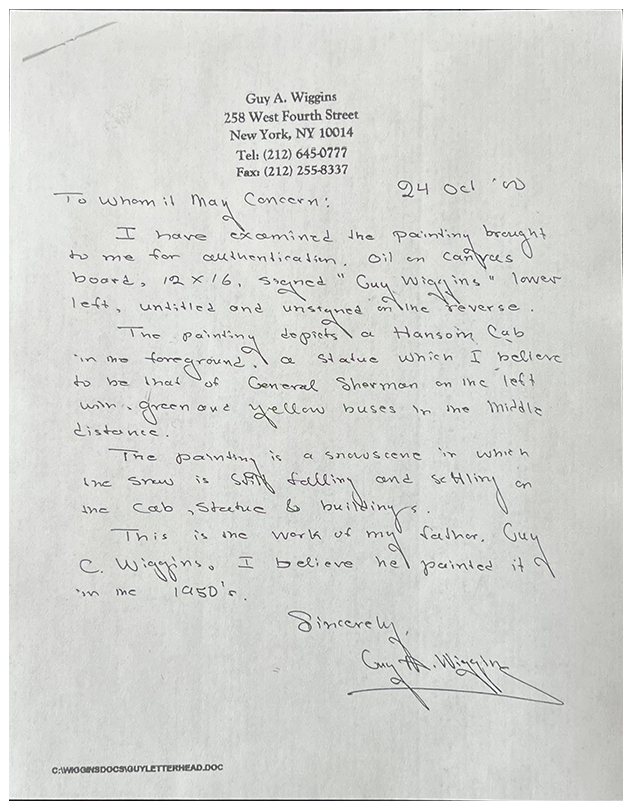 Guy A. Wiggins
258 West Fourth Street
New York, NY 10014
Tel: (212) 645-0777
Fax: (212) 255-8337
24 Oct '00
To Whom it May Concern:
I have examined the painting brought
to me for authentication. Oil on canvas
board, 12 x 16, signed "Guy Wiggins" lower
left, untitled and unsigned on the reverse.
The painting depicts a Hansom Cab
in the foreground, a statue which I believe
to be that of General Sherman on the left
with green and yellow buses in the middle
distance.
The painting is a snowscene in which
the snow is still falling and settling on
the Cab, Statue & buildings.
This is the work of my father, Guy
C. Wiggins. I believe he painted it
in the 1950's.
Sincerely,
Guy A. Wiggins
C:\WIGGINSDOCS\GUYLETTERHEAD.DOC